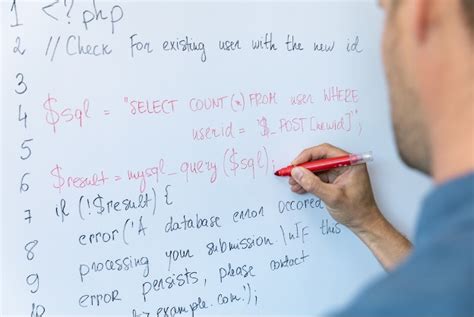 1 <?php
2 // Check For existing user with the new id
3
4 $sql = "SELECT COUNT (*) FROM user WHERE
5 userid = '$_POST[newid]'";
6 $result = mysql_query ($sql);
7 if (!$result) {
8 error ('A database error occored
9 processing your submission.\nIF this
10 error persists, please contact
example.com.');